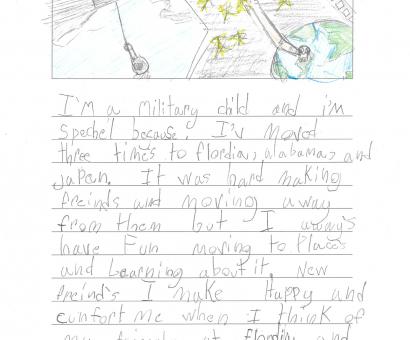 I'm a military child and i'm
spechel because. I'v moved
three times to flordia, alabama, and
Japan. It was hard making
freinds and moving away
from them but I aways
have Fun moving to Places
and Learning about it. New
freind's I make Happy and
cunfort me when I think of
my friends at flordia and